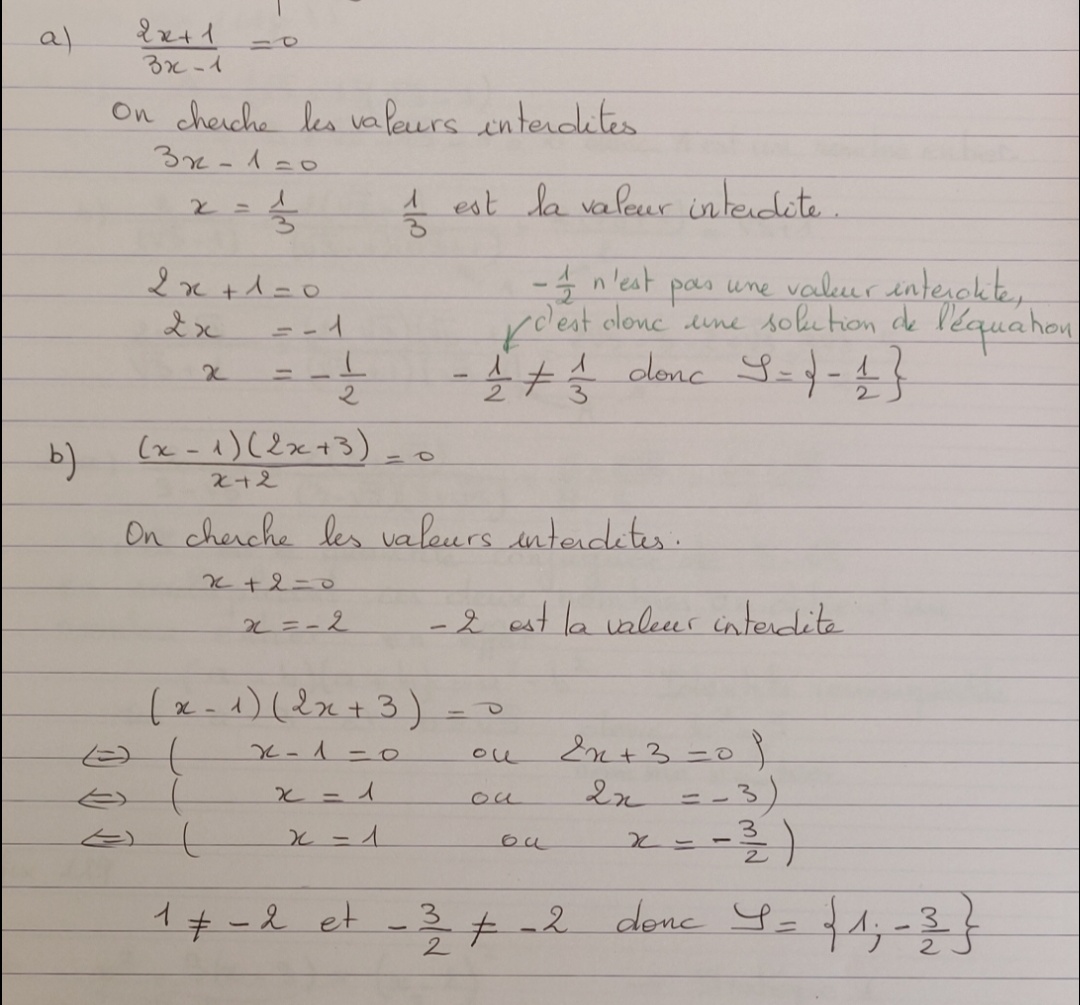 a) (2x+1)/(3x-1) = 0
On cherche les valeurs interdites
3x - 1 = 0
x = 1/3 1/3 est la valeur interdite.
2x + 1 = 0 -1/2 n'est pas une valeur interdite,
2x = -1 c'est donc une solution de l'équation
x = -1/2 -1/2 ≠ 1/3 donc S = {-1/2}
b) ((x - 1)(2x+3))/(x+2) = 0
On cherche les valeurs interdites.
x + 2 = 0
x = -2 -2 est la valeur interdite
(x - 1)(2x + 3) = 0
⇔ ( x - 1 = 0 ou 2x + 3 = 0 )
⇔ ( x = 1 ou 2x = -3 )
⇔ ( x = 1 ou x = -3/2 )
1 ≠ -2 et -3/2 ≠ -2 donc S = {1; -3/2}